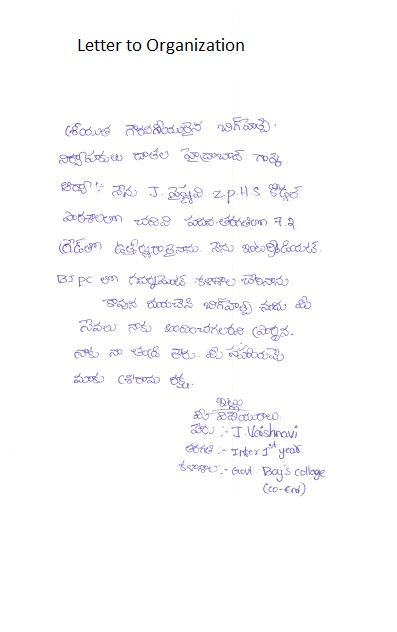 Letter to Organization
శ్రీయుత గౌరవనీయులైన బిగ్‌హెల్ప్.
నిర్వాహకులు దాతల హైద్రాబాద్ గార్కి
ఆర్యా :- నేను J. వైష్ణవి Z.P.H.S
పాఠశాలలో చదివి పదవ తరగతిలో 7.2
గ్రేడ్‌తో ఉత్తీర్ణురాలైనాను. నేను ఇంటర్మీడియట్.
BIPC లో గవర్నమెంట్ కళాశాల చేరినాను.
కావున దయచేసి బిగ్‌హెల్ప్ నందు మీ
సేవలు నాకు అందించగలరని ప్రార్థన.
నాకు నా తండ్రి లేరు. మీ సహాయమే
మాకు శ్రీరామ రక్ష.
ఇట్లు
మీ విధేయురాలు.
పేరు :- J. Vaishnavi
తరగతి :- Inter 1st year
కళాశాల :- Govt Boy's college
(co-End)